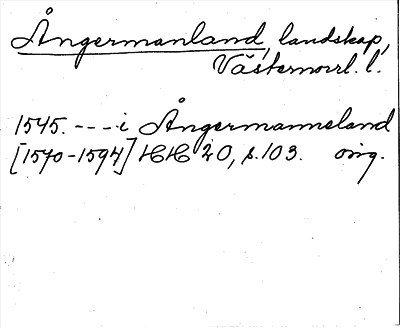 Ångermanland, landskap,
Västernorrl. l.
1545. --- i Ångermanneland
[1570-1594] HH 20, s. 103. orig.